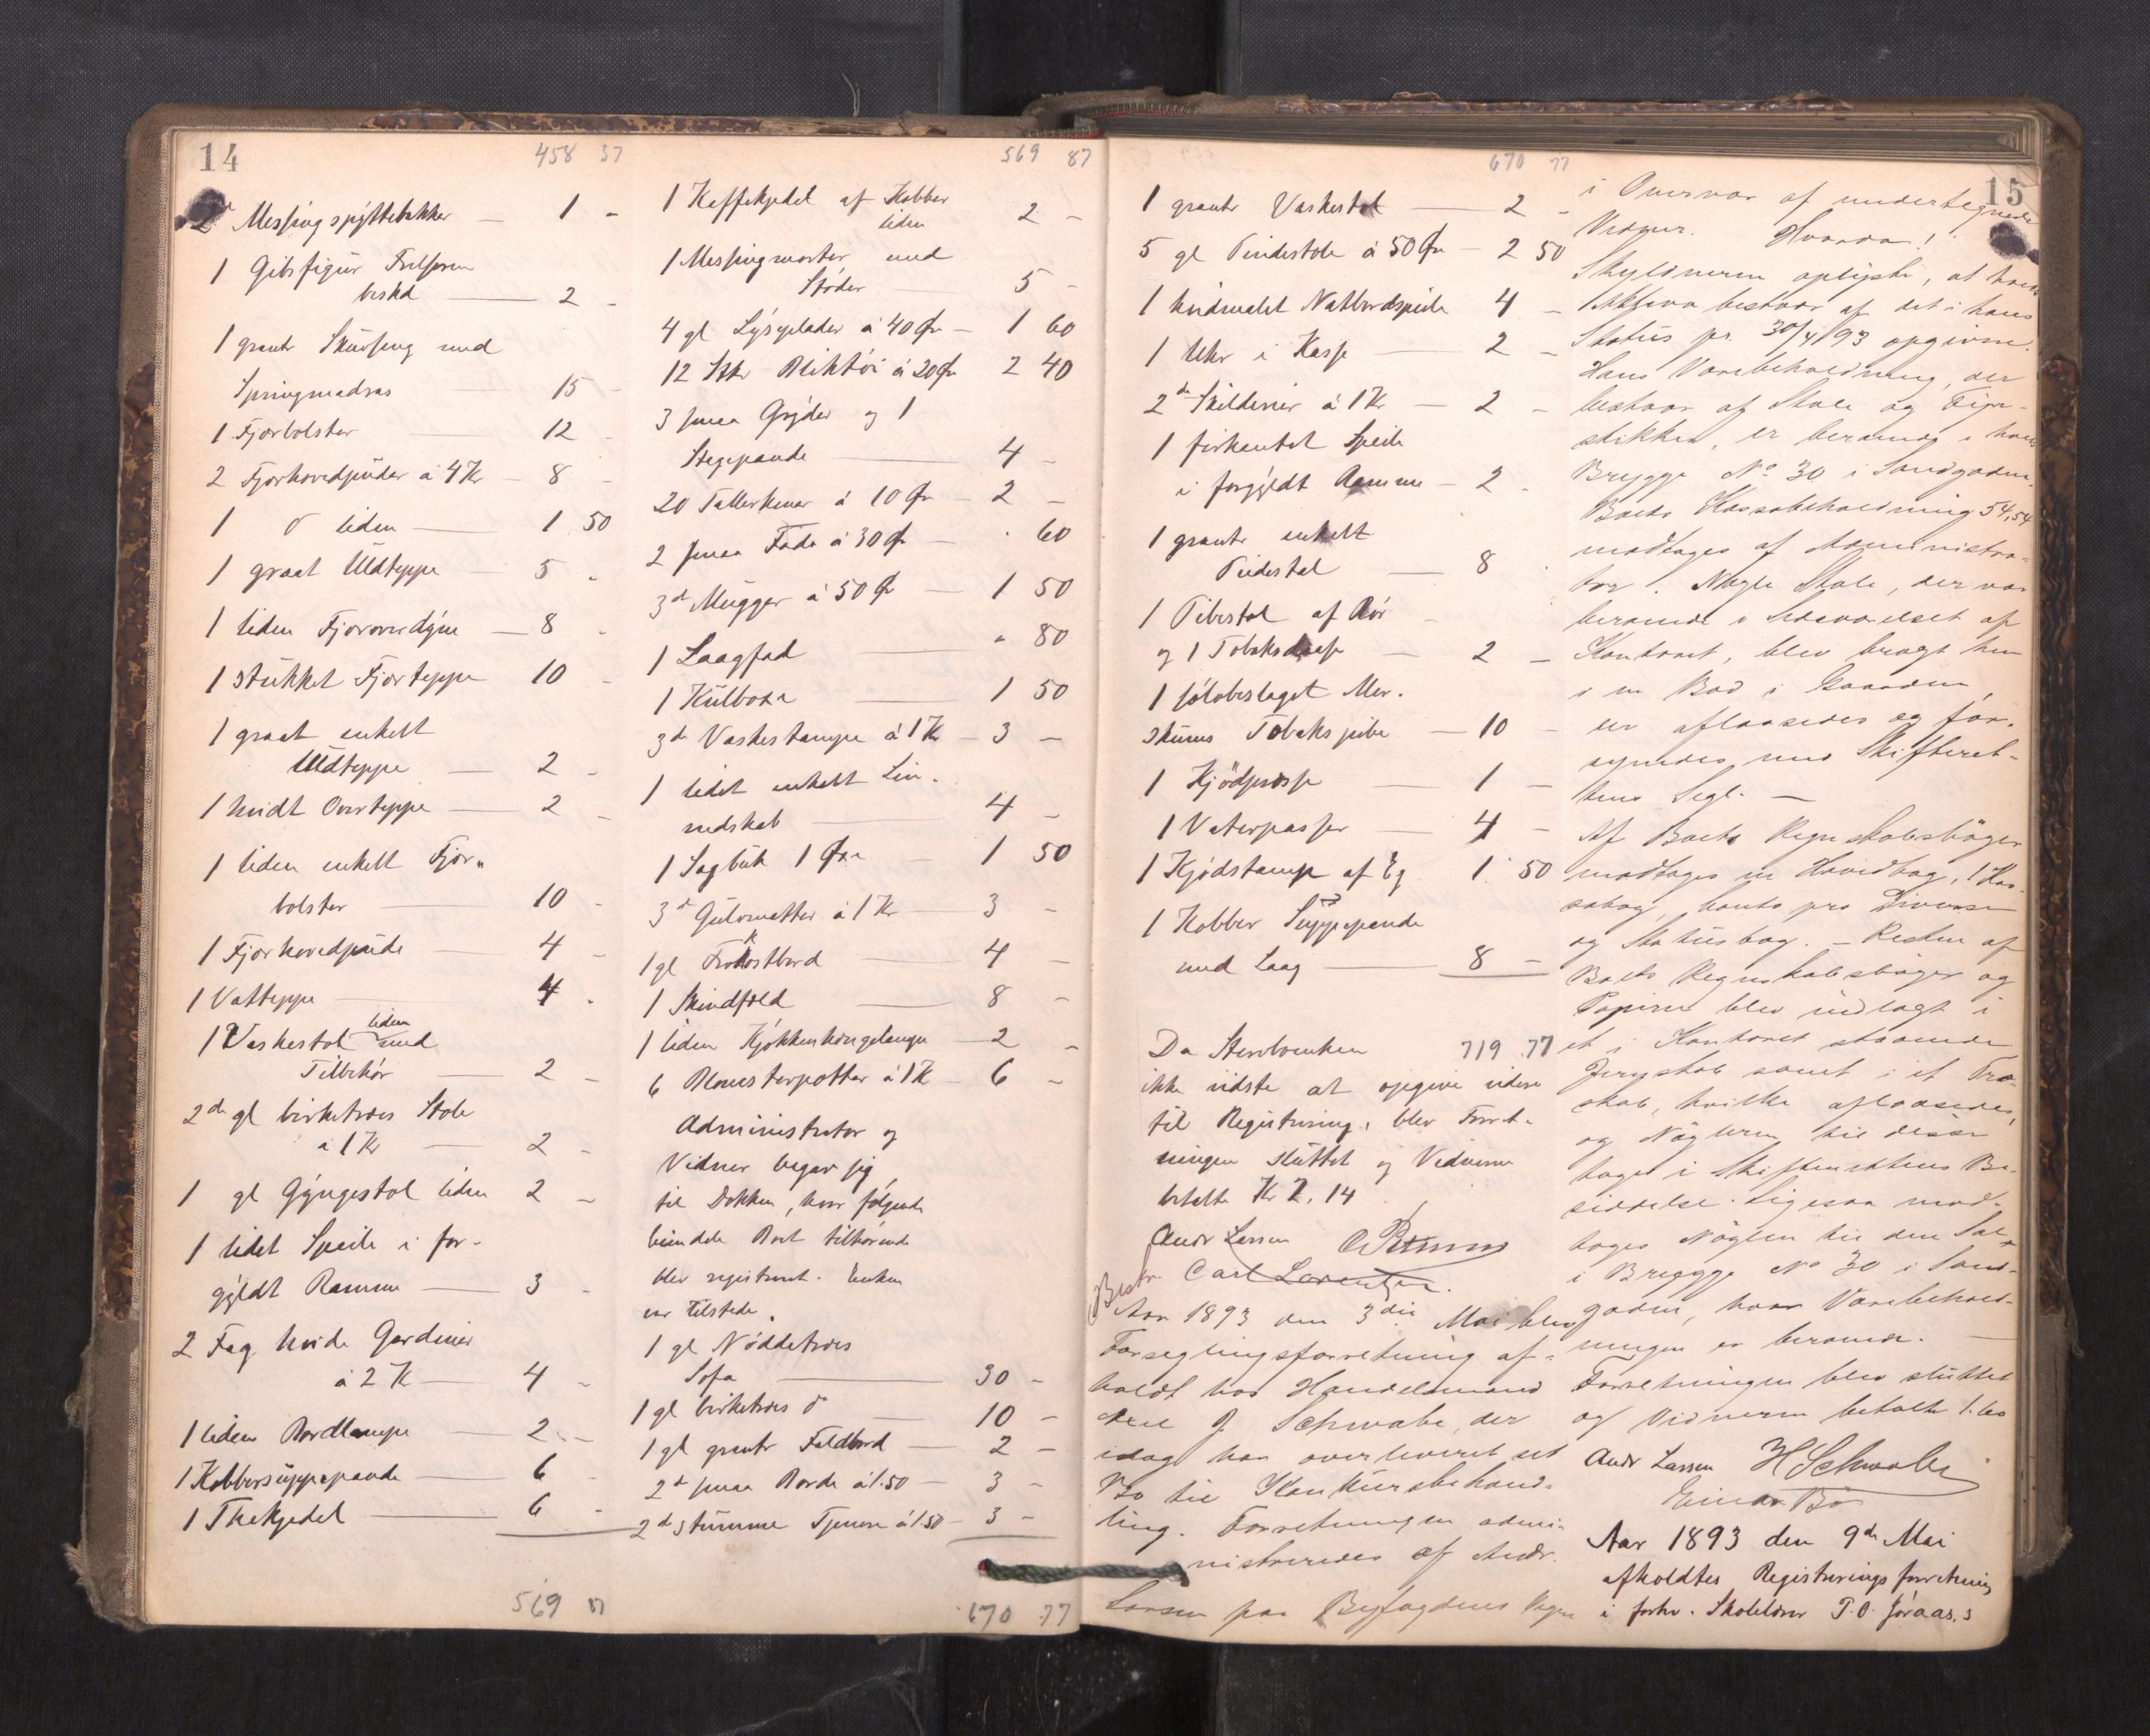 14
458 37
2 Messingspyttebakker — 1 -
1 Gibsfigur Frelseren
2 -
1 grantr Skuvseng med
Springmadras 15 -
1 Fjørbolster — 12 -
2 Fjørhovedpuder á 4 Kr — 8 -
1 do liden — 1 50
1 graat Uldteppe — 5 -
1 liden Fjøroverdyne — 8 -
1 stukket Fjørteppe 10 -
1 graat enkelt
Uldteppe — 2 -
1 hvidt Overteppe — 2 -
1 liden enkelt Fjør-
bolster — 10 -
1 Fjørhovedpude — 4 -
1 Vatteppe — 4 -
1 Vaskestol liden med
Tilbehør — 2 -
2de gl birketræs Stole
á 1 Kr — 2 -
1 gl Gyngestol liden 2 -
1 lidet Speile i for-
gyldt Ramme — 3 -
2 Fag hvide Gardiner
á 2 K — 4 -
1 liden Bordlampe — 2 -
1 Kobbersuppepande — 6 -
1 Thekjedel — 6 -
569 87
569 87
1 Kaffekjedel af Kobber
liden 2 -
1 Messingmorter med
Støder — 5 -
4 gl Lysplader á 40 Øre — 1 60
12 Stkr Bliktøi á 20 Øre 2 40
3 smaa Gryder og 1
Stegepande — 4 -
20 Tallerkener á 10 Øre — 2 -
2 smaa Fade á 30 Ø — " 60
3de Mugger á 50 Ø — 1 50
1 Laagfad — " 80
1 Kulboxe — 1 50
3de Vaskestampe á 1 Kr — 3 -
1 lidet enkelt Lin-
nedskab — 4 -
1 Sagbuk 1 Øxe — 1 50
3de Gulvmatter á 1 Kr — 3 -
1 gl Frokostbord — 4 -
1 Skindfeld — 8 -
1 liden Kjøkkenhængelampe — 2 -
6 Blomsterpotter á 1 K — 6 -
Administrator og
Vidner begav sig
til Dokken, hvor følgende
Boet tilhørende
blev registreret. Enken
var tilstede.
1 gl Nøddetræs
Sofa — 30 -
1 gl birketræs do — 10 -
1 gl grantr Foldbord — 2 -
2de smaa Borde á 1.50 3 -
2de stumme Tjenere á 1.50 — 3 -
670 77
15
670 77
1 grantr Vaskestol — 2 -
5 gl Pindestole á 50 Øre — 2 50
1 hvidmalet Natbordspeile 4 -
1 Uhr i Kasse — 2 -
2de Skilderier á 1 Kr — 2 -
1 firkantet Speile
i forgyldt Ramme — 2 -
1 grantr enkelt
Pidestal — 8 -
1 Pibestol af Rør
og 1 Tobaksdaase — 2 -
1 sølvbeslaget Mer-
skums Tobakspibe — 10 -
1 Kjødpresse — 1 -
1 Vaterpasser — 4 -
1 Kjødstamp af Eg 1 50
1 Kobber Suppepande
med Laag — 8 -
719 77
Da Stervboenken
ikke vidste at opgive videre
til Registrering, blev Forret-
ningen sluttet og Vidnerne
betalte Kr 2.14
Andr Larsen
Carl Lorentzen.
Aar 1893 den 3die Mai blev
Forseglingsforretning af-
holdt hos Handelsmand
J. Schwabe, der
idag har overleveret sit
Bo til Konkursbehand-
ling. Forretningen admi-
nistreredes af Andr.
Larsen paa Byfogdens Vegne
i Overvær af undertegnede
Vidner. Hvorda!
Skyldneren oplyste, at hans
Aktiva bestaar af det i hans
Status pr. 30/4 93 opgivne.
Hans Varebeholdning, der
bestaar af Stole og Fyr-
stikker, er beroende i hans
Brygge No 30 i Sandgaden.
Boets Kassabeholdning 54,54
modtages af Administra-
tor. Nogle Stole, der var
beroende i Sideværelset af
Kontoret, blev bragt hen
i en Bod i Gaarden,
der aflaasedes og for-
synedes med Skifteret-
tens Segl. —
Af Boets Regnskabsbøger
modtages en Hovedbog, 1 Kas-
sabog, Conto pro Diverse
og Statusbog. — Resten af
Boets Regnskabsbøger og
Papirer blev indlagt i
et i Kontoret staaende
Jernskab samt i et Træ-
skab, hvilke aflaasedes,
og Nøglerne til disse
toges i Skifterettens Be-
siddelse. Ligesaa mod-
toges Nøglen til den Sal
i Brygge No 30 i Sand-
gaden, hvor Varebehold-
ningen er beroende. —
Forretningen blev sluttet
og Vidnerne betalte 1.60
Andr Larsen H Schwabe
Einar Bø
Aar 1893 den 9de Mai
afholdtes Registreringsforretning
i forhv. Skolelærer T. O.